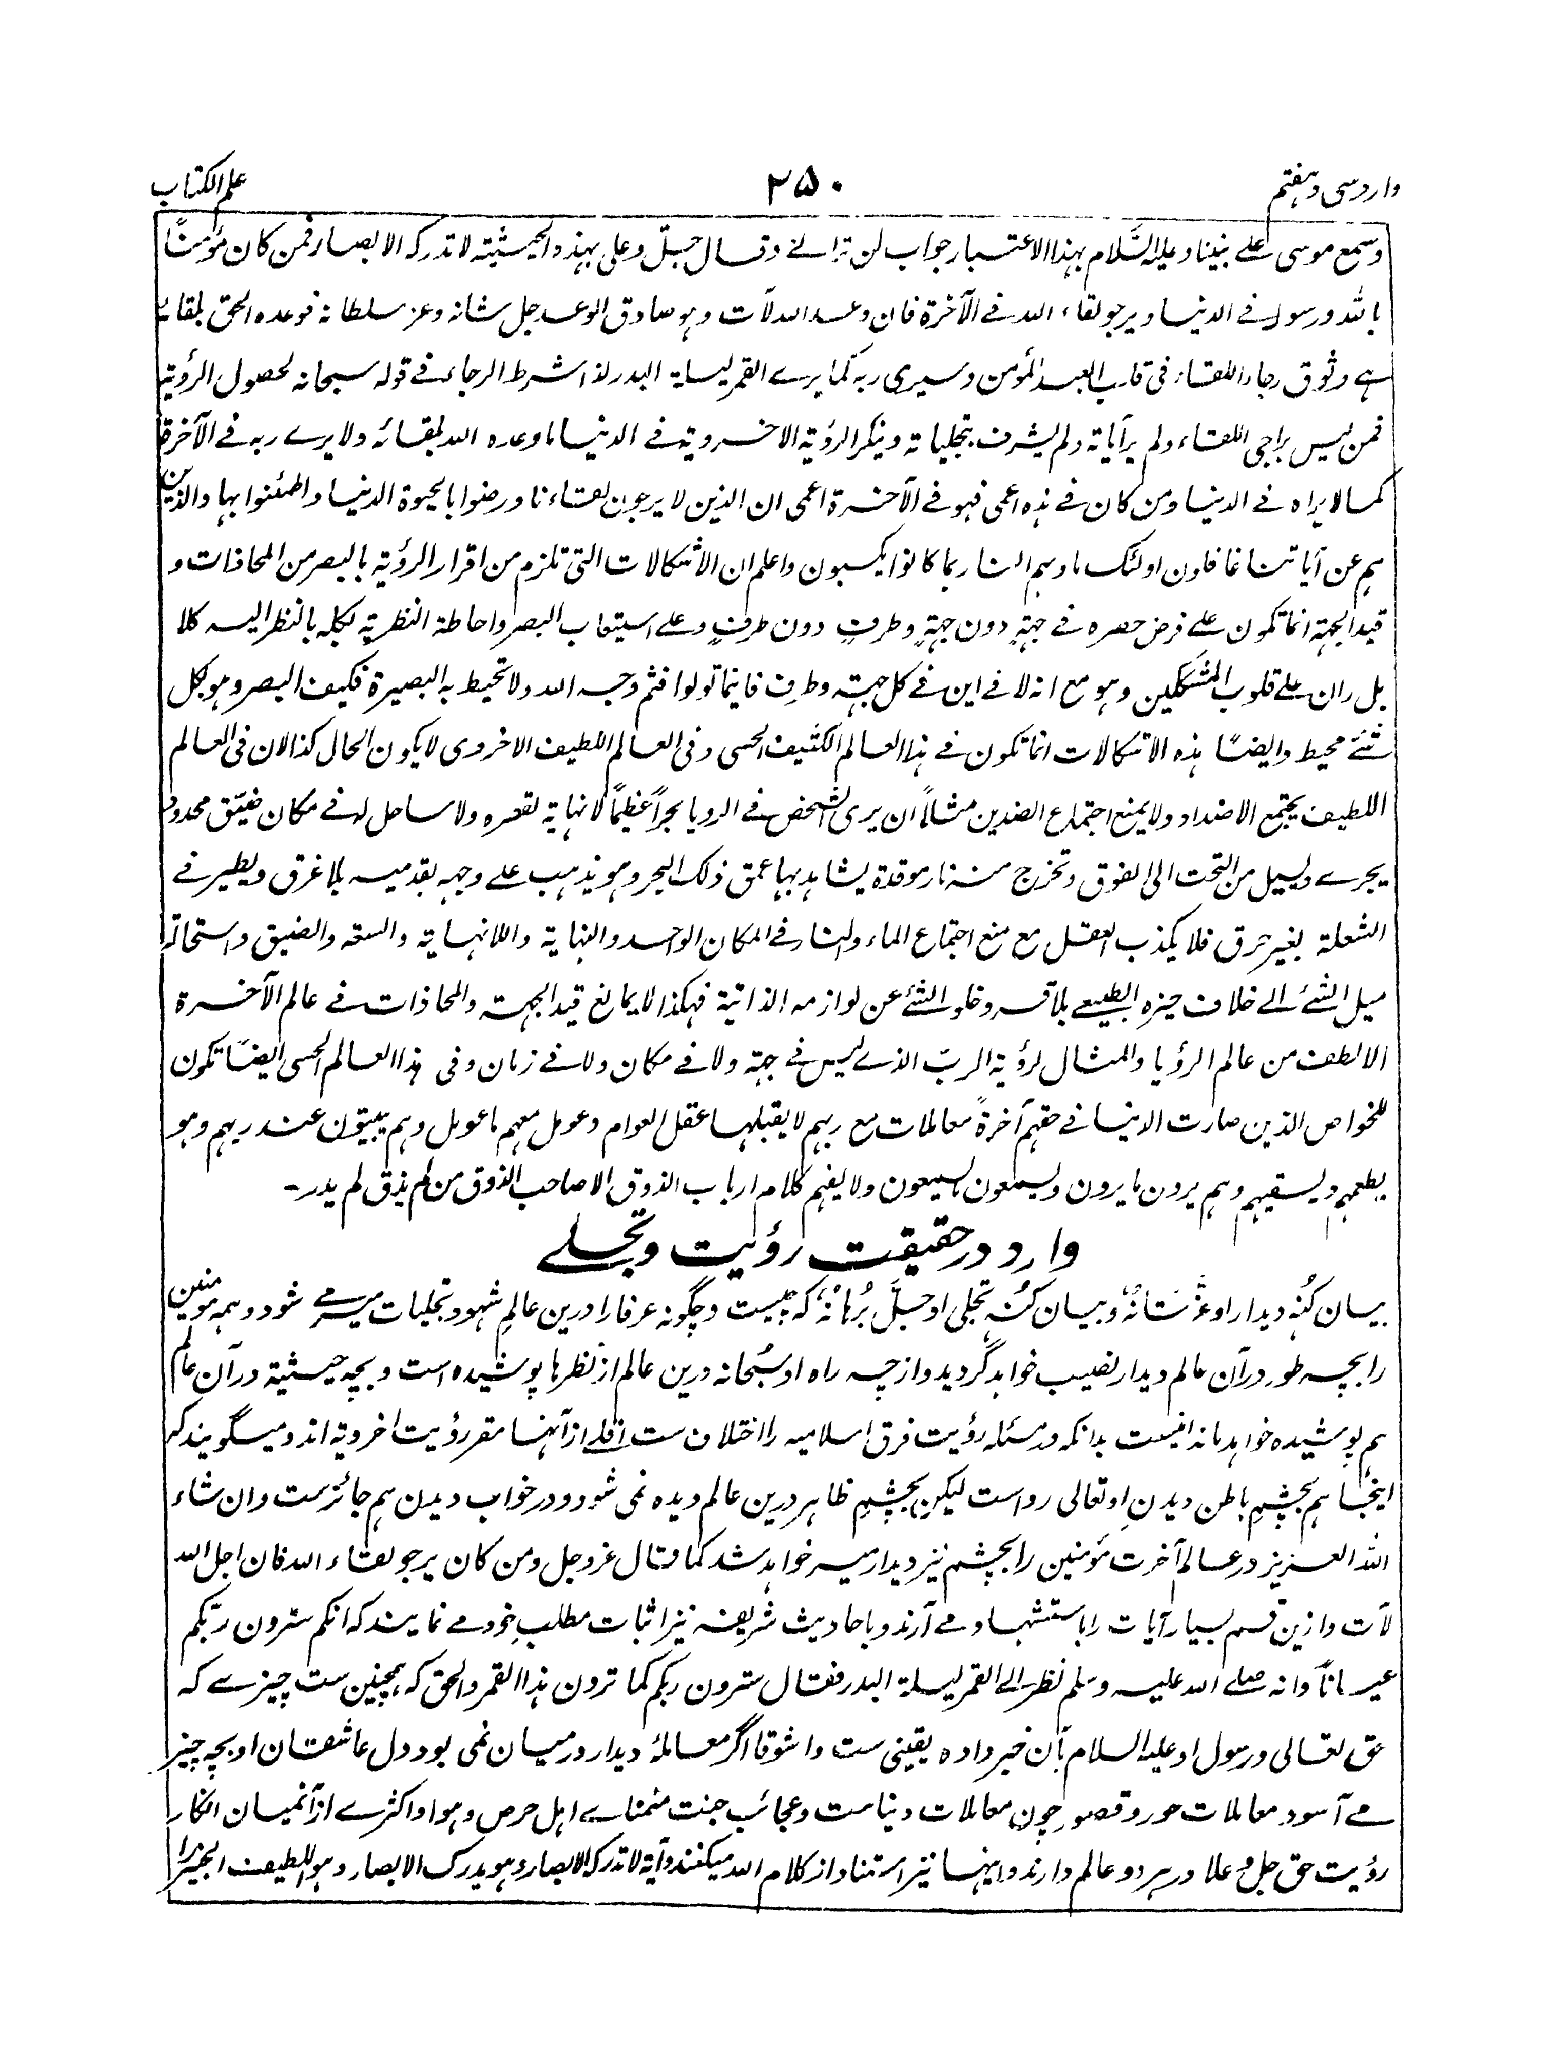 وارد سی و هفتم
۲۵۰
علم الکتاب
وسمع موسی علے نبینا و علیہ السَّلام بہذا الاعتبار جواب لن ترانے وقال جلّ وعلی بہذہ الحیثیّتہ لا تدرکہ الابصار فمن کان مؤمنًا
باللہ ورسولہ فے الدنیا ویرجو لقاء اللہ فے الآخرۃ فان وعد اللہ لآت وہو صادق الوعد جل شانہ وعز سلطانہ فوعدہ الحق بلقائہ
ہے وثوق رجاء اللقاء فی قلب العبد المؤمن وسیری ربہ کما یرے القمر لیلۃ البدر لذا شرط الرجاء فے قولہ سبحانہ لحصول الرؤیۃ
فمن لیس براجی اللقاء ولم یر آیاتہ ولم یشرف بتجلیاتہ وینکر الرؤیۃ الاخرویۃ فے الدنیا ما وعدہ اللہ لبقائہ ولا یرے ربہ فے الآخرۃ
کما لا یراہ فے الدنیا ومن کان فے ہذہ اعمی فہو فے الآخرۃ اعمی ان الذین لا یرجون لقاءنا ورضوا بالحیوۃ الدنیا واطمئنوا بہا والذین
ہم عن آیاتنا غافلون اولئک ماوٰہم النار بما کانوا یکسبون واعلم ان الاشکالات التی تلزم من اقرار الرؤیۃ بالبصر من المحاذات و
قید الجہۃ انما تکون علے فرض حصرہ فے جہتہٍ دون جہۃٍ وطرفٍ دون طرفٍ وعلے استیعاب البصر واحاطۃ النظریۃ لکلہ بالنظر الیہ کلا
بل ران علے قلوب المشککین وہو مع انہ لا فے این فے کل جہتہ وطرف فاینما تولوا فثم وجہ اللہ ولا تحیط بہ البصیرۃ فکیف البصر وہو بکل
شئے محیط وایضًا ہذہ الاشکالات انما تکون فے ہذا العالم الکثیف الحسی وفی العالم اللطیف الاخروی لا یکون الحال کذا لان فی العالم
اللطیف یجتمع الاضداد ولا یمنع اجتماع الضدین مثلاً ان یری الشخص فے الرویا بحراً عظیماً لا نہایۃ لقعرہ ولا ساحل لہ فے مکان ضیّق محدود
یجرے ویسیل من التحت الی الفوق وتخرج منہ نار موقدۃ یشاہد بہا عمق ذلک البحر وہو یذہب علے وجہہ بقدمیہ بلا غرق ویطیر فے
الشعلۃ بغیر حرق فلا یکذب العقل مع منع اجتماع الماء والنار فے المکان الواحد والنہایۃ واللانہایۃ والسعہ والضیق واستحالۃ
میل الشئے الے خلاف حیزہ الطبیعے بلا قسر وخلو الشئے عن لوازمہ الذاتیۃ فہکذا لا یمانع قید الجہت والمحاذات فے عالم الآخرۃ
الالطف من عالم الرؤیا والمثال لرؤیۃ الربّ الذے لیس فے جہۃ ولا فے مکان ولا فے زمان وفی ہذا العالم الحسی ایضًا تکون
للخواص الذین صارت الدنیا فے حقہم آخرۃً معاملات مع ربہم لا یقبلہا عقل العوام وعومل معہم ما عومل وہم یبیتون عند ربہم وہو
یطعمہم ویسقیہم وہم یرون ما یرون ویسمعون ما یسمعون ولا یفہم کلام ارباب الذوق الا صاحب الذوق من لم یذق لم یدر۔
وارد در حقیقت رؤیت و تجلے
بیان کُنہ دیدار او عزّ شانُہٗ و بیان کُنہِ تجلی او جلَّ بُرہانُہٗ کہ چیست و چگونہ عرفا را درین عالمِ شہود تجلیات میسر مے شود وہمہ مومنین
را بچہ طور در آن عالم دیدار نصیب خواہد گردید و از چہ راہ او سبُحانہ درین عالم از نظرہا پوشیدہ است و بچہ حیثیۃ در آن عالم
ہم پوشیدہ خواہد ماند انیست بدانکہ در مسئلہ رؤیت فرق اسلامیہ را اختلاف ست اقلے از آنہا مقر رؤیت اخرویۃ اند و میگویند کہ
اینجا ہم بچشمِ باطن دیدنِ او تعالی رواست لیکن بچشمِ ظاہر درین عالم دیدہ نمی شود و در خواب دیدن ہم جائزست وان شاء
اللہ العزیز در عالم آخرت مؤمنین را بچشم نیز دیدار میسر خواہد شد کما قال عز وجل ومن کان یرجو لقاء اللہ فان اجل اللہ
لآت وازین قسم بسیار آیات را باستشہاد مے آرند و باحادیث شریفہ نیز اثبات مطلبِ خود مے نمایند کہ انکم سترون ربّکم
عیاناً وانہ صلے اللہ علیہ وسلم نظر الے القمر لیلۃ البدر فقال سترون ربکم کما ترون ہذا القمر والحق کہ ہمچنین ست چیزے کہ
حق تعالی و رسول او علیہ السلام بآن خبر دادہ یقینی ست واشوقا اگر معاملۂ دیدار درمیان نمی بود دل عاشقان او بچہ چیز
مے آسود معاملات حور و قصور چون معاملات دنیاست و عجائب جنت متمناے اہل حرص وہوا و اکثرے از آنمیان انکار
رؤیت حق جل وعلا در ہر دو عالم دارند و اینہا نیز استناد از کلام اللہ میکنند و آیۃ لا تدرکہ الابصار وہو یدرک الابصار وہو اللطیف الخبیر را